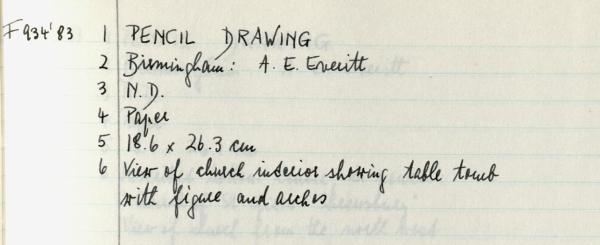 F934'83 1 PENCIL DRAWING
2 Birmingham: A. E. Everitt
3 N.D.
4 Paper
5 18.6 x 26.3 cm
6 View of church interior showing table tomb
with figure and arches